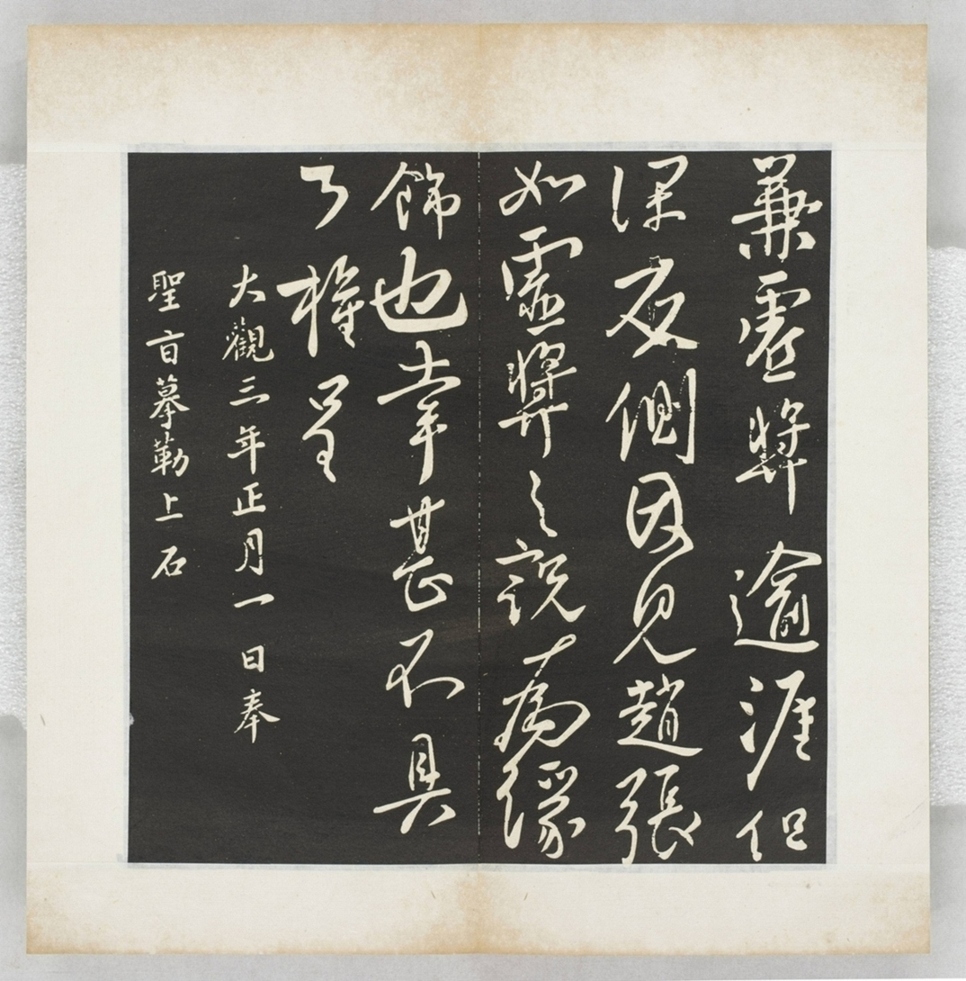 兼虛獎逾涯但
深反側因見趙張
如虛獎之說大為緣
飾也幸甚不具
公權呈
大觀三年正月一日奉
聖旨摹勒上石